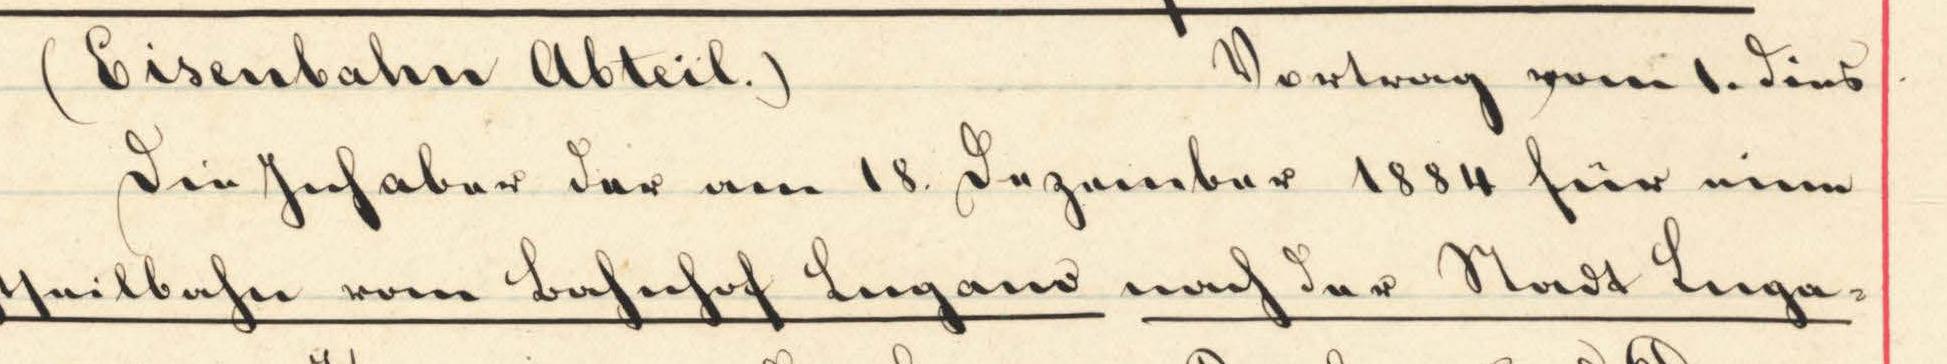 (Eisenbahn Abteil.) Vortrag vom 1. dies
Die Inhaber der am 18. Dezember 1884 für eine
Seilbahn vom Bahnhof Lugano nach der Stadt Luga-